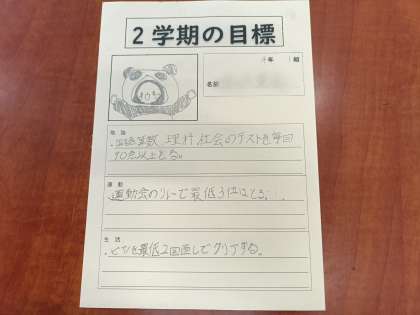 2学期の目標
年 組
名前
勉強
・国語算数 理科 社会のテストを毎回
90点以上とる。
運動
運動会のリレーで最低3位はとる…。
生活
・を最低2回回してクリアする。